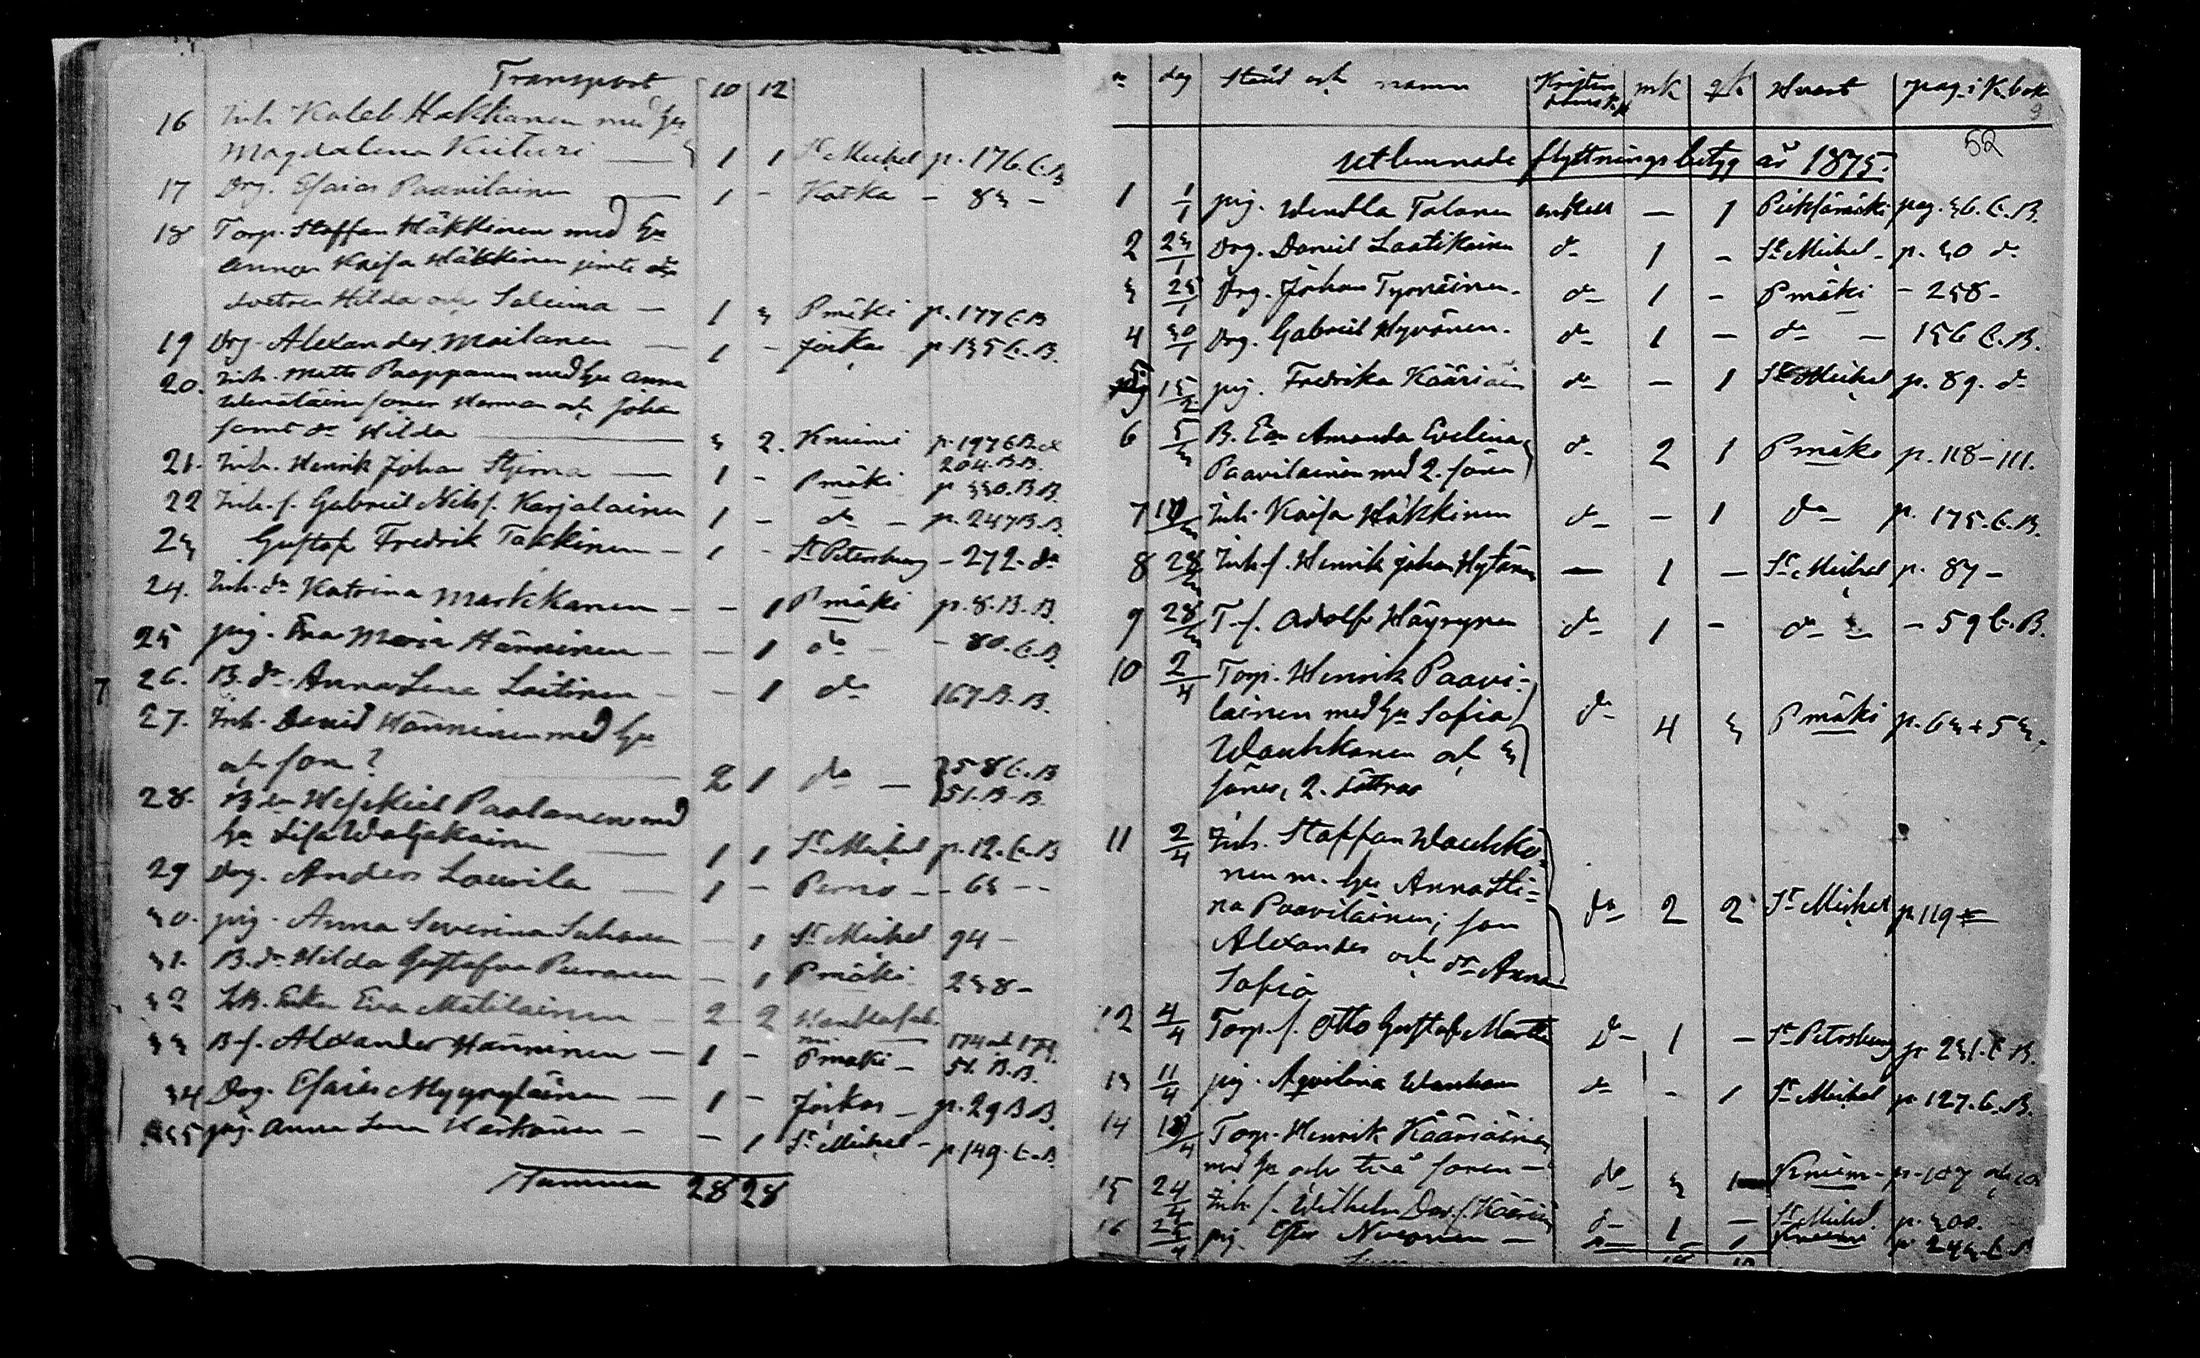 Transport 10 12
16 Inh. Kaleb Hakkanen med hu
Magdalena Kuituri — 1 1 St Michel p. 176. C.B
17 Drg. Esaias Paavilainen — 1 - Kotka - 83 -
18 Torp. Staffan Häkkinen med hu
Anna Kaisa Häkkinen jemte
Hilda och — 1 3 Pmäki p. 177 C.B
19 Drg. Alexander Moilanen — 1 - Jorkas p. 135 C.B.
20. Inh. Matts Paappanen med hu Anna
söner Herman och Johan
samt dr Hilda — 3 2. Kniemi p. 197 C.B. &
204. B.B.
21. Inh. Henrik Johan Stjerna — 1 - Pmäki p 330. B.B.
22 Inh. s. Gabriel Nils s. Karjalainen 1 - do - p. 247 B.B.
23 Gustaf Fredrik Takkinen - 1 - St Petersburg - 272. do
24. Inh. dr Katrina Markkanen - - 1 Pmäki p. 8. B.B.
25 pig. Eva Maria Hänninen - - 1 do - - 80. C.B.
26. B. dr. Anna Lena Laitinen - - 1 do 167. B.B.
27. Inh. David Hänninen med hu
och son? 2 1 do - 58 C.B
51. B.B.
28. B. Heskiel Paalanen med
hu Lisa Waljakainen — 1 1 St Michel p. 12. C.B
29 Drg. Anders Laurila — 1 - Perno - - 63 - -
30. pig. Anna Severina Suhonen - 1 St Michel 94 -
31. B. dr Hilda Gustafva Puranen - 1 Pmäki 238 -
32 Enka Eva Matilainen - 2 2
33 B. s. Alexander Hänninen - 1 - Pmäki - 51. B.B.
34 Drg. Esaias Myyryläinen - 1 - Jorkas - p. 29 B.B.
35 pig. Anna Lena Härkönen - - 1 St Michel - p 149. C.B.
Summa 28 28
dag Stånd och namn mk qk Hvart pag. i K.bok
52
Utlemnade flyttningsbetyg år 1875.
1 1/1 pig. Wendla Tolonen enkell — 1 Pieksämäki pag. 36. C.B.
2 23/1 Drg. Daniel Laatikainen do 1 - St Michel - p. 30 do
3 25/1 Drg. Johan Tyrväinen - do 1 - Pmäki - 258 -
4 30/1 Drg. Gabriel Hyvönen. do 1 — do — 156 C.B.
5 15/2 pig. Fredrika Kääriäin do — 1 St Michel p. 89. do
6 5/3 B. Amanda Evelina
Paavilainen med 2. söner do 2 1 Pmäki p. 118 - 111.
7 Inh. Kaisa Häkkinen do - 1 do p. 175. C.B.
8 28/3 Inh. s. Henrik Johan Hytönen — 1 — St Michel p. 87 -
9 28/3 T. s. Adolf Häyrynen do 1 - do - 59 C.B.
10 2/4 Torp. Henrik Paavi-
lainen med hu Sofia
Wauhkonen och 3
söner, 2. döttrar do 4 3 Pmäki p. 63 + 53.
11 2/4 Inh. Staffan Wauhko-
nen m. hu Anna Sti-
na Paavilainen; son
Alexander och dr Anna
Sofia do 2 2 St Michel p 119
12 4/4 Torp. s. Otto Gustaf do - 1 - St Petersburg p 231. C.B.
13 11/4 pig. Aqvilina do - 1 St Michel p 127. C.B.
14 Torp. Henrik Kääriäinen
med hu och två söner - do 3 1 Kniemi p. 107
15 24/4 Inh. s. Wilhelm Dav. s. do 1 — St Michel. p. 300.
16 pig. Ester - 1 Kniemi p 243. C.B.